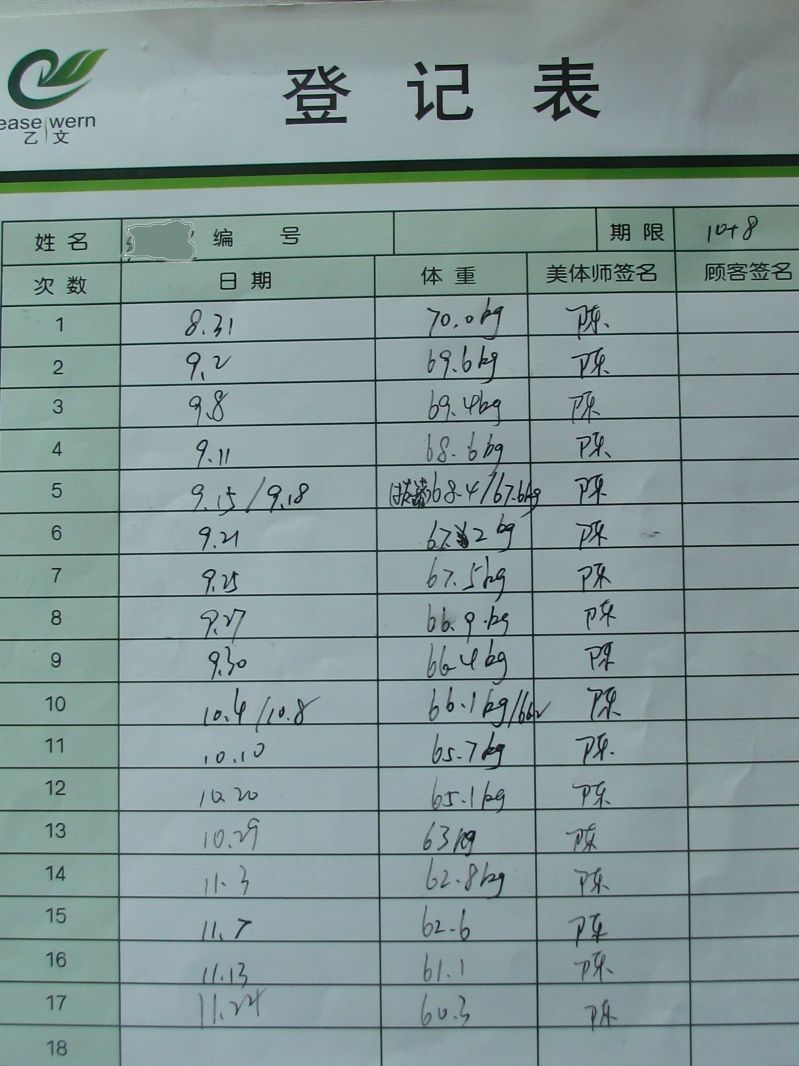 easewern
乙文
登记表
姓名 编号 期限 10+8
次数 日期 体重 美体师签名 顾客签名
1 8.31 70.0kg 陈
2 9.2 69.6kg 陈
3 9.8 69.4kg 陈
4 9.11 68.6kg 陈
5 9.15/9.18 68.4/67.6kg 陈
6 9.21 67.2kg 陈
7 9.25 67.5kg 陈
8 9.27 66.9kg 陈
9 9.30 66.4kg 陈
10 10.4/10.8 66.1kg/66.2 陈
11 10.10 65.7kg 陈
12 10.20 65.1kg 陈
13 10.29 63kg 陈
14 11.3 62.8kg 陈
15 11.7 62.6 陈
16 11.13 61.1 陈
17 11.24 60.3 陈
18